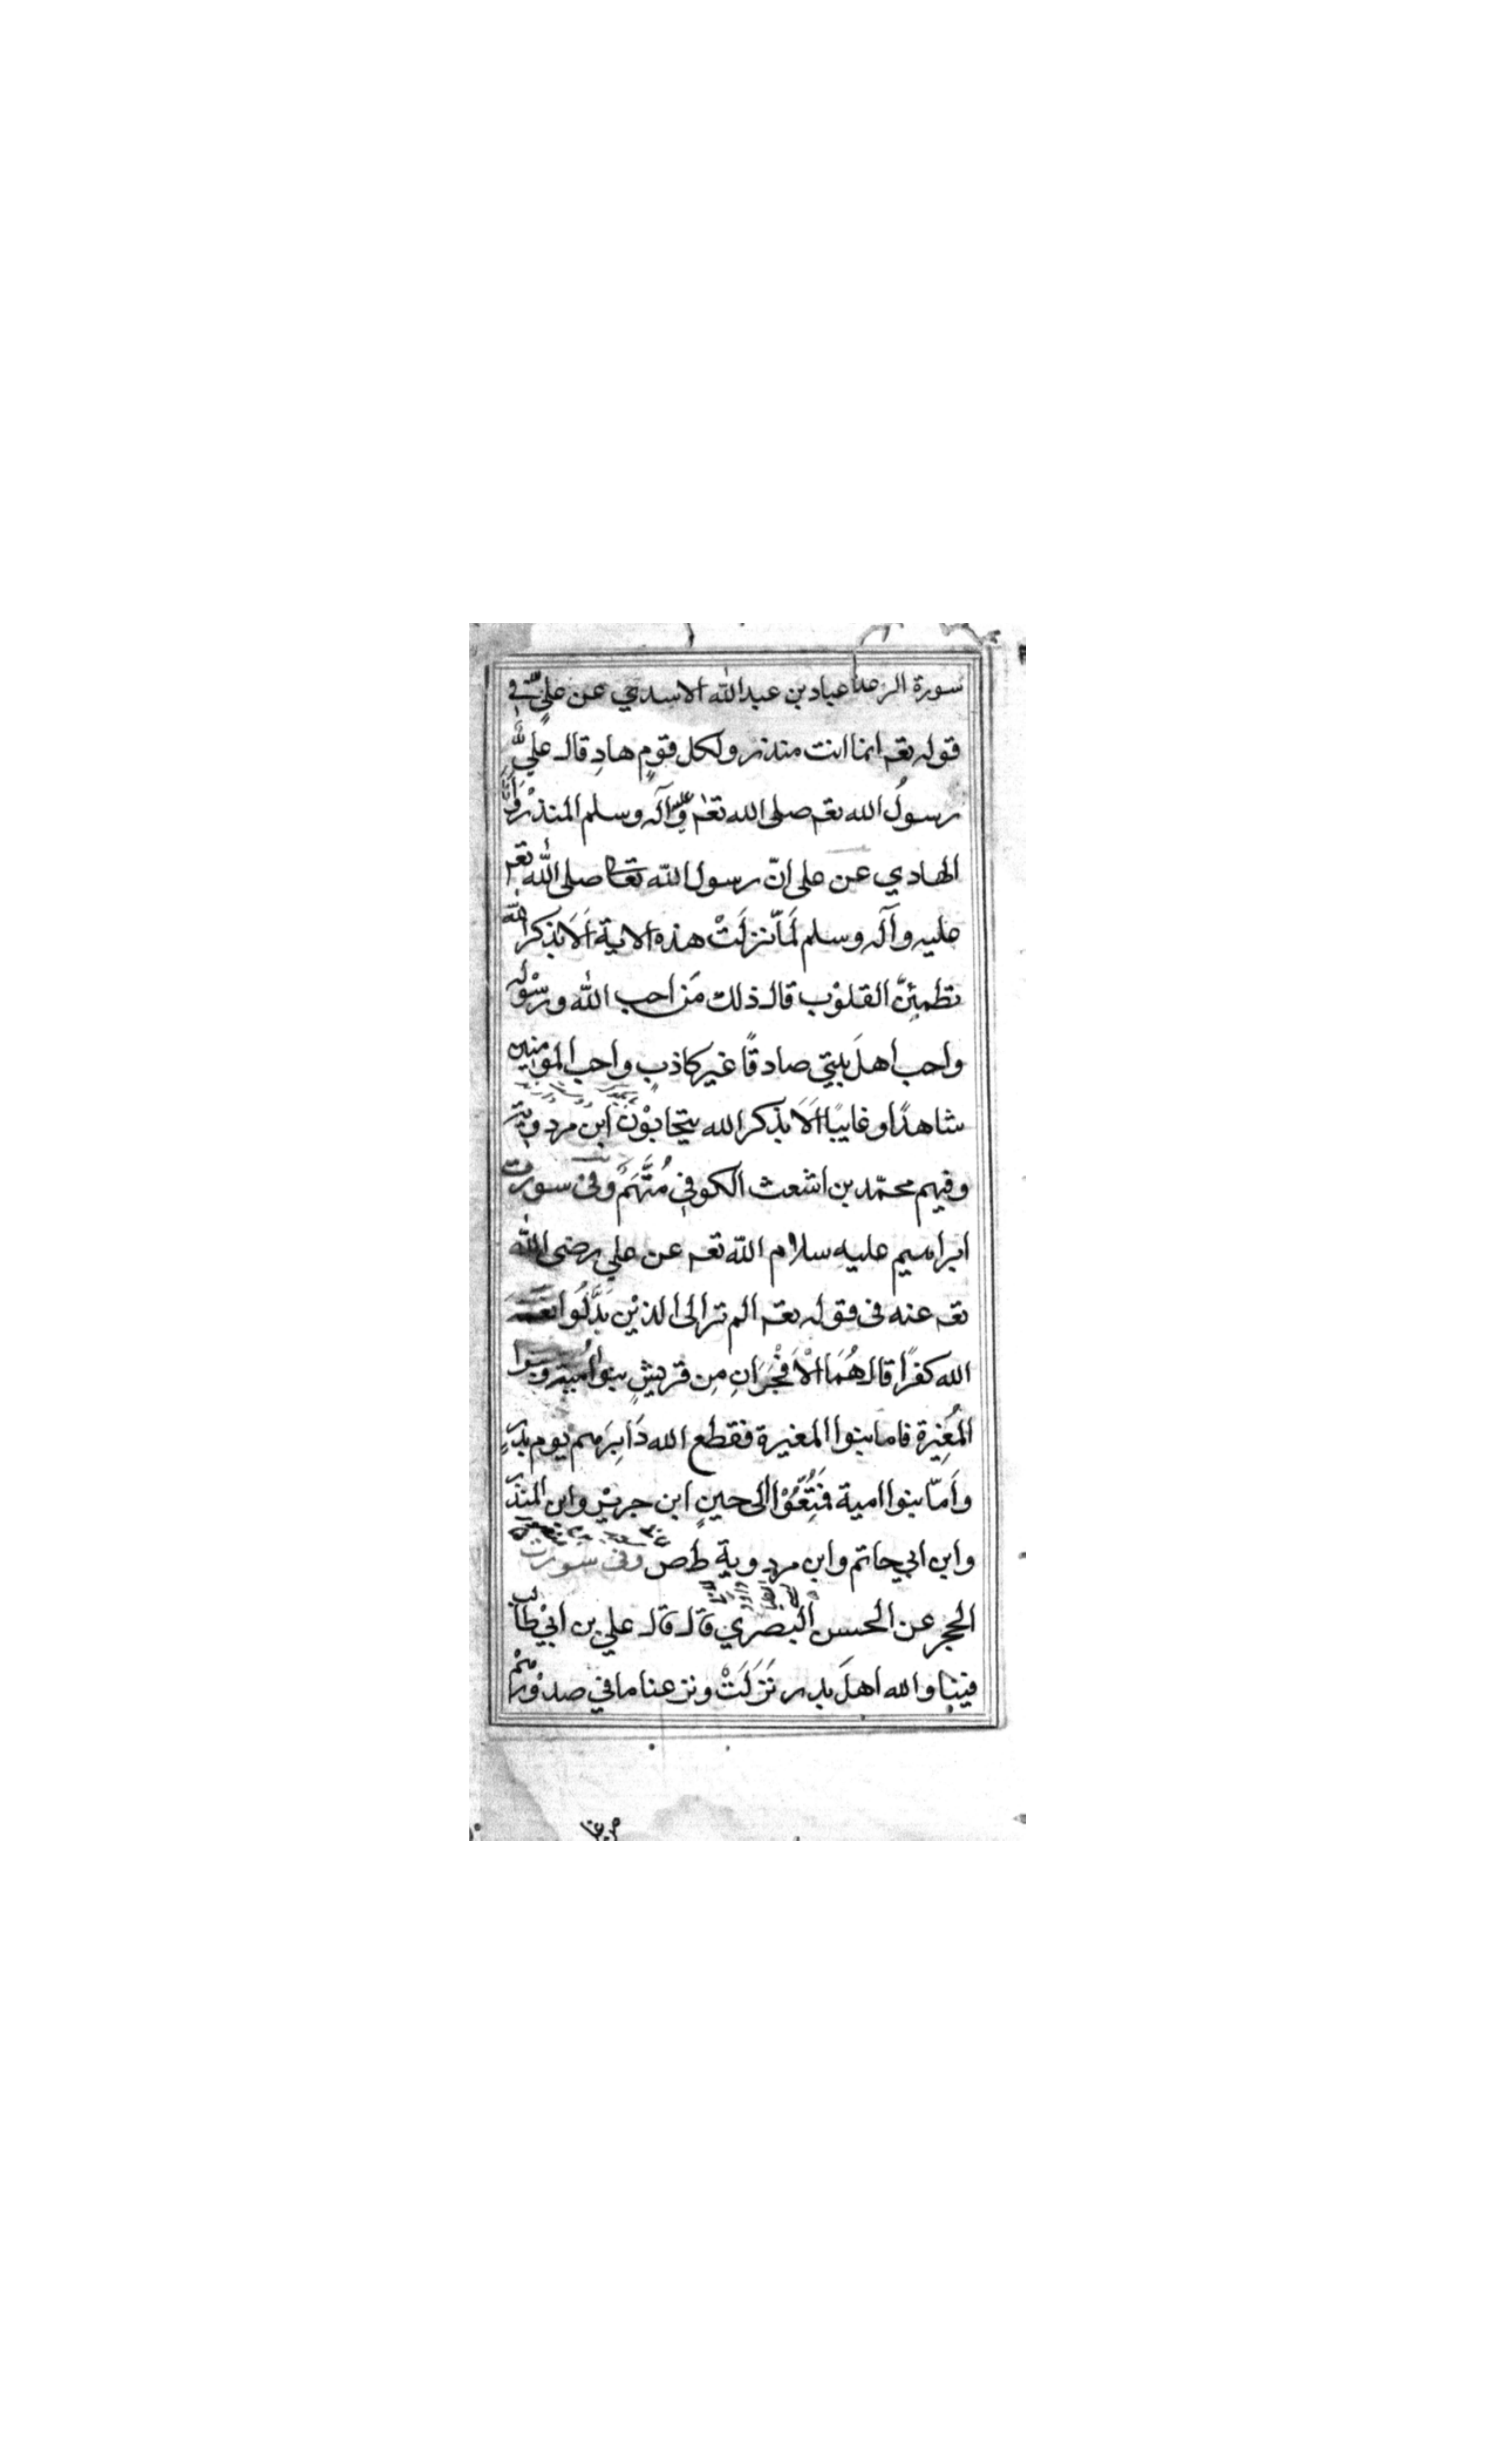 سورة الرعد عباد بن عبدالله الاسدي عن علي في
قوله تعـ انما انت منذر ولكل قومٍ هادٍ قال عليّ
رسولُ الله تعـ صلى الله تعـ عليه وآله وسلم المنذرْ وانا
الهادي عن على انّ رسول الله تعا صلى الله تعـ
عليه وآله وسلم لَمّا نزلَتْ هذه الاية اَلَا بذكر الله
تطمئِنّ القلوْب قال ذلك مَن احب الله ورسْوله
واحب اهلَ بيتي صادقًا غير كاذبٍ واحب المؤمنين
شاهدًا وغايبًا اَلَا بذكر الله يتحابوْن ابن مردوية
وفيهم محمّد بن اشعث الكوفي مُتَّهَمٌ وفي سورت
ابراهيم عليه سلام الله تعـ عن علي رضى الله
تعـ عنه فى قوله تعـ الم تر الى الذيْن بَدَّلُوا نعمة
الله كفرًا قال هُمَا الْاَفْجَرَانِ مِن قريشٍ بنوا اُمية وبنوا
المُغِيْرة فاما بنوا المغيرة فقطع الله دَابِرَهم يوم بدرٍ
وَاَمّا بنوا امية فَمُتِّعُوْا الى حينٍ ابن جريْر وابن المنذر
وابن ابي حاتم وابن مردوية طص وفى سورت
الحجر عن الحسن البصري قال قال علي بن ابيْ طالب
فينا والله اهلَ بدر نَزَلَتْ ونزعنا ما في صدوْرهم